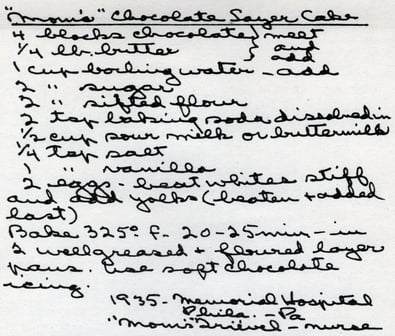 "Mom's" Chocolate Layer Cake
4 blocks chocolate } melt
1/4 lb. butter } and add
1 cup boiling water - add
2 " sugar
2 " sifted flour
2 tsp baking soda dissolved in
1/2 cup sour milk or buttermilk
1/4 tsp salt
1 " vanilla
2 eggs - beat whites stiff
and add yolks (beaten + added
last)
Bake 325° f - 20-25 min - in
2 well greased + floured layer
pans. Use soft chocolate
icing.
1935 - Memorial Hospital
Phila. - Pa
"Mom's" - nurse